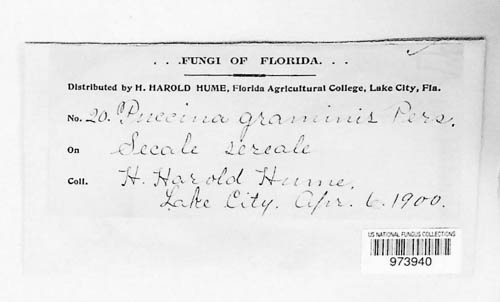 . . .FUNGI OF FLORIDA. . .
Distributed by H. HAROLD HUME, Florida Agricultural College, Lake City, Fla.
No. 20. Puccina graminis Pers.
On Secale sereale
Coll. H. Harold Hume,
Lake City, Apr. 6. 1900.
US NATIONAL FUNGUS COLLECTIONS
973940